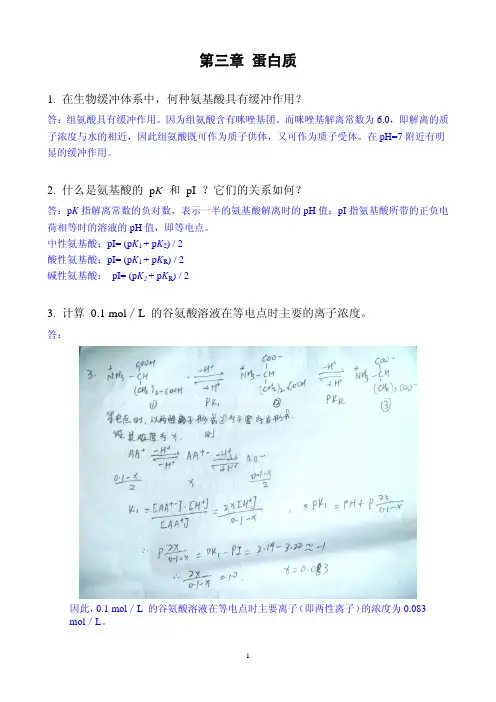 第三章 蛋白质
1. 在生物缓冲体系中，何种氨基酸具有缓冲作用？
答：组氨酸具有缓冲作用。因为组氨酸含有咪唑基团。而咪唑基解离常数为6.0，即解离的质
子浓度与水的相近，因此组氨酸既可作为质子供体，又可作为质子受体。在pH=7附近有明
显的缓冲作用。
2. 什么是氨基酸的 pK 和 pI ？它们的关系如何？
答：pK指解离常数的负对数，表示一半的氨基酸解离时的pH值；pI指氨基酸所带的正负电
荷相等时的溶液的pH值，即等电点。
中性氨基酸：pI= (pK1 + pK2) / 2
酸性氨基酸：pI= (pK1 + pKR) / 2
碱性氨基酸： pI= (pK2 + pKR) / 2
3. 计算 0.1 mol／L 的谷氨酸溶液在等电点时主要的离子浓度。
答：
3. COOH COO- COO-
+NH3-CH -H+ +H+ +NH3-CH -H+ +H+ +NH3-CH
(CH2)2-COOH PK1 (CH2)2COOH PKR (CH2)2COO-
① ② ③
等电点时，以两性离子形式
设其浓度为x. 则
AA+ -H+ -H+ AA+- -H+ +H+ AA-
0.1-x/2 x 0.1-x/2
K1 = [AA+-]·[H+]/[AA+] = 2x[H+]/0.1-x ∴ = PK1 = PH + P 2x/0.1-x
∴ P 2x/0.1-x = PK1 - PI = 2.19 - 3.22 ≈ -1
∴ 2x/0.1-x = 10. x=0.083
因此，0.1 mol／L 的谷氨酸溶液在等电点时主要离子（即两性离子）的浓度为0.083
mol／L。
1